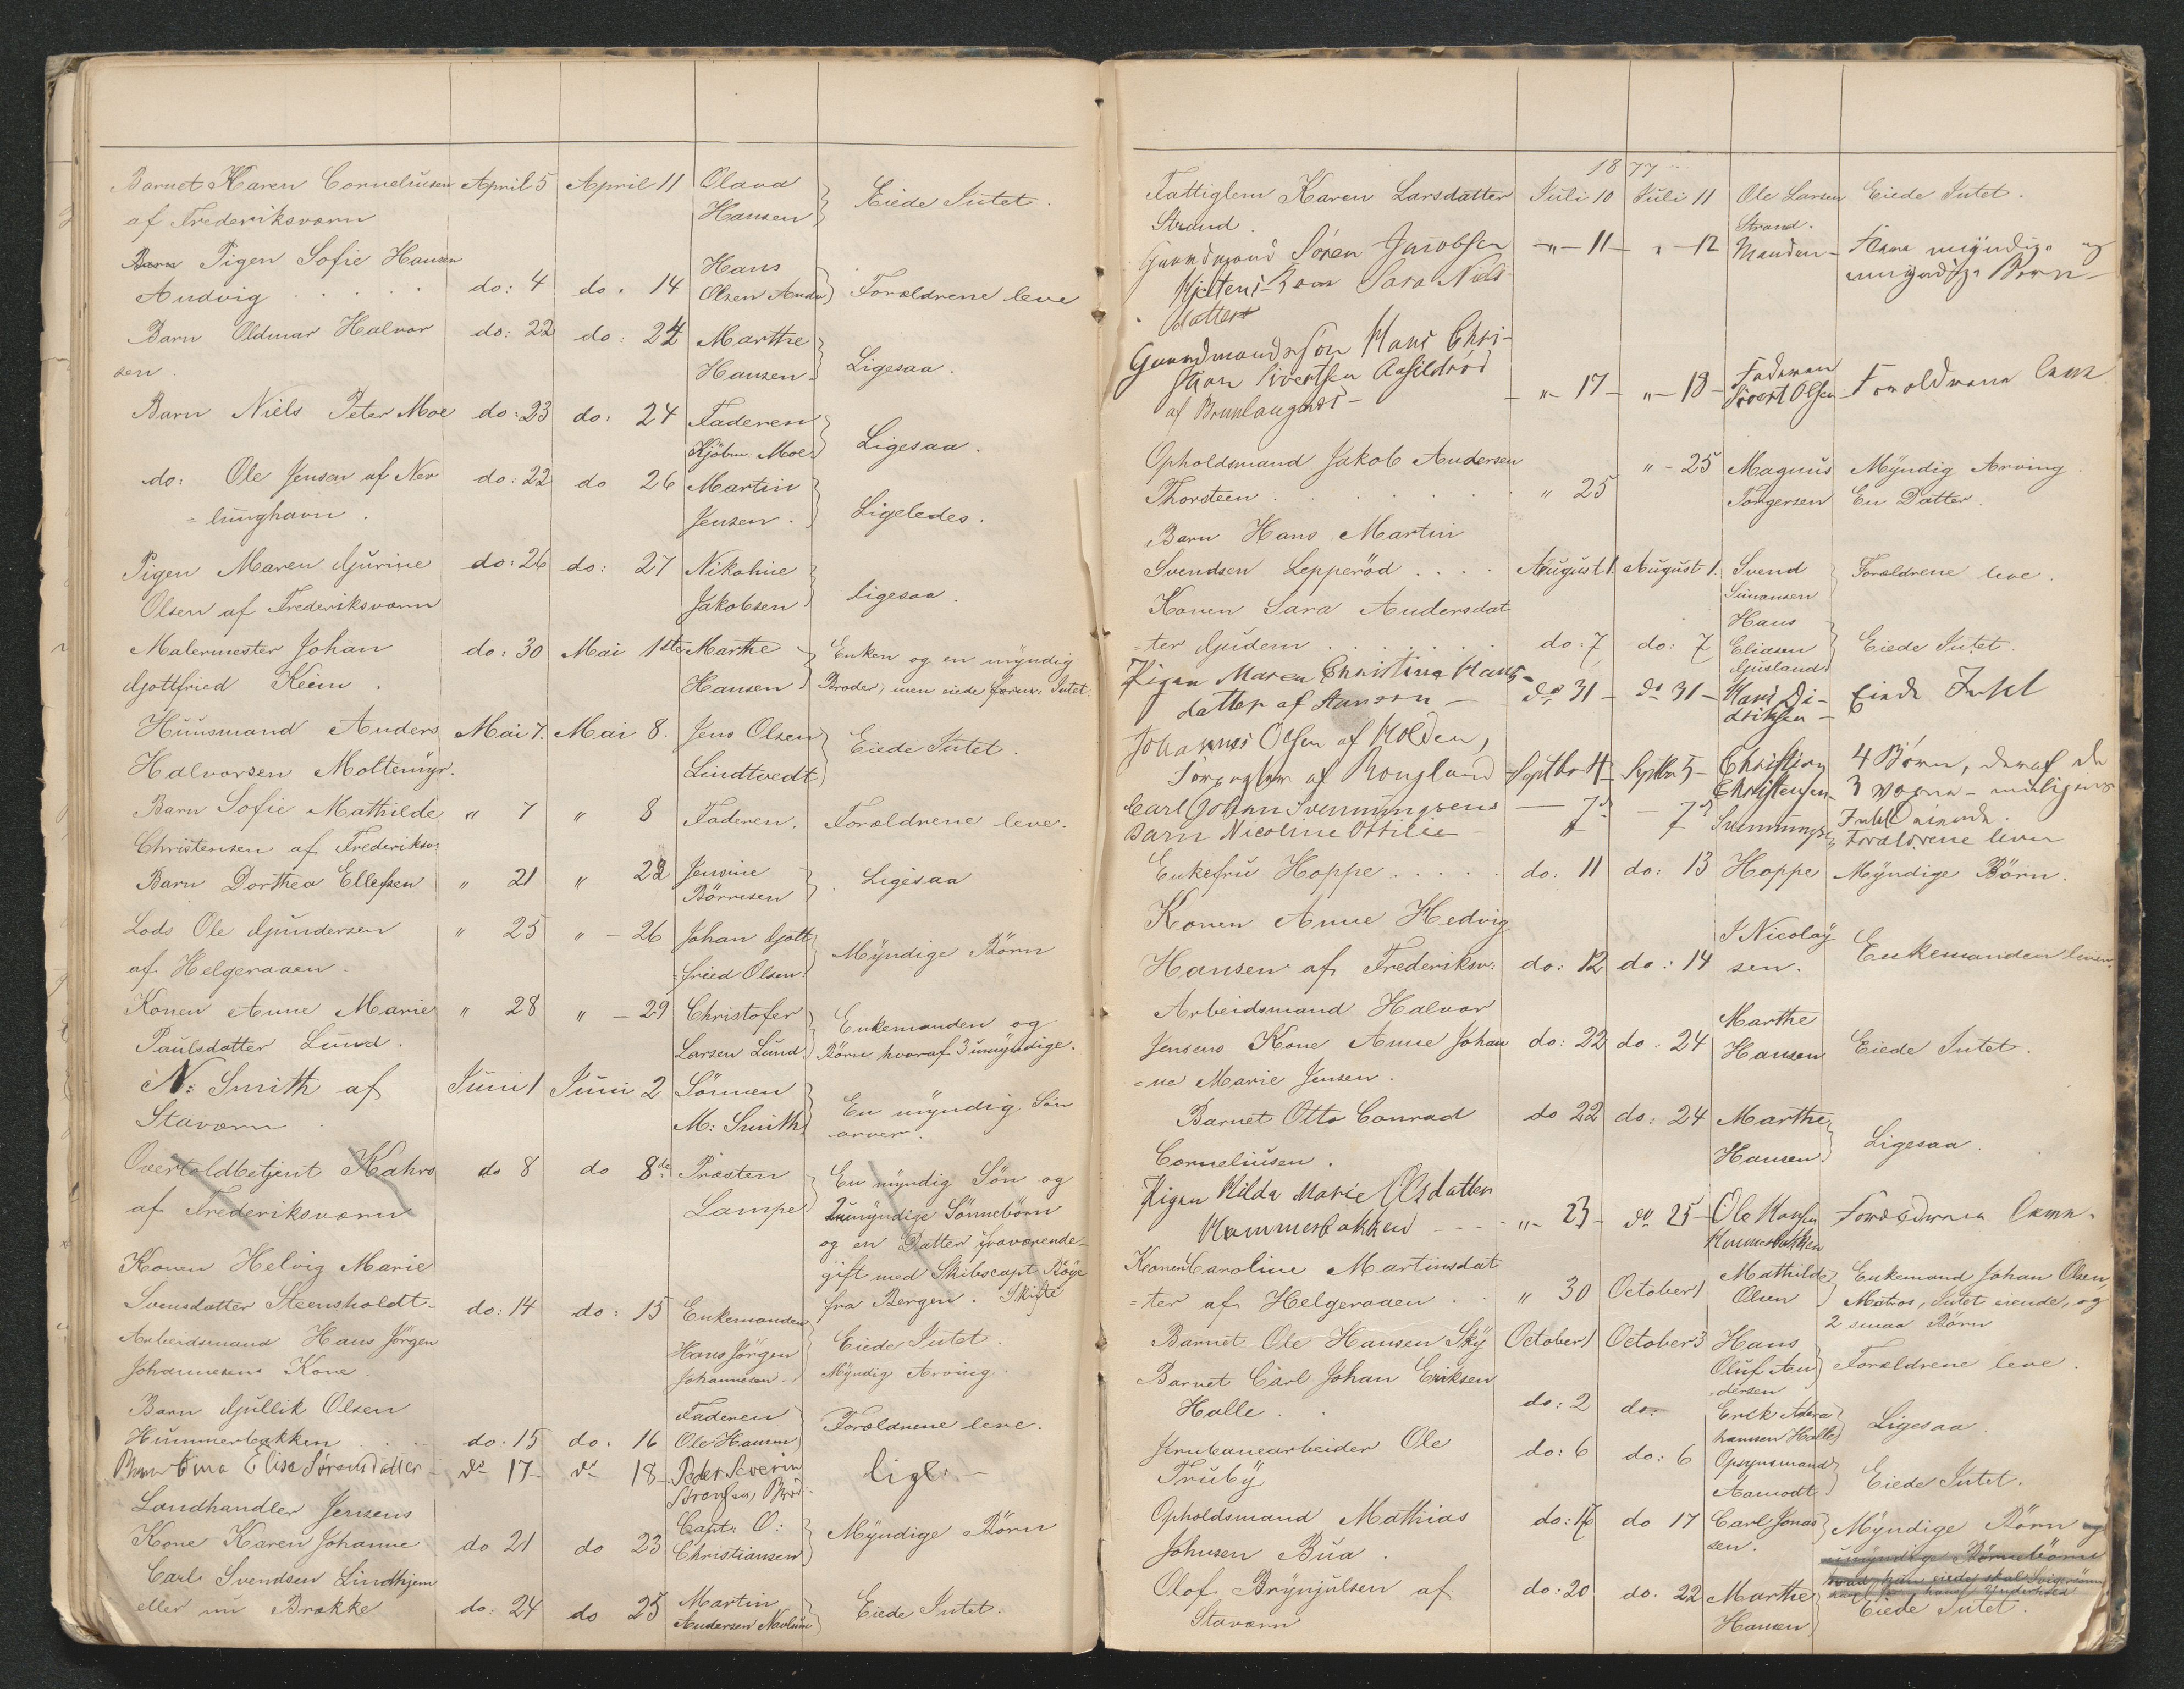 Barnet Karen Corneliusen April 5 April 11 Olava
af Frederiksværn Hansen Eiede Intet.
Barn Pigen Sofie Hansen Hans
Andvig do: 4 do. 14 Olsen Andv Forældrene leve
Barn Oldmar Halvor do: 22 do: 24 Marthe
sen. Hansen Ligesaa.
Barn Niels Peter Moe do: 23 do: 24 Faderen
Kjöbm. Moe Ligesaa.
do: Ole Jensen af Nev do: 22 do 26 Martin
=lunghavn. Jensen. Ligeledes.
Pigen Maren Gurine do: 26 do: 27 Nikoline
Olsen af Frederiksværn Jakobsen ligesaa.
Malermester Johan do: 30 Mai 1ste Marthe Enken og en myndig
Gottfried Keim. Hansen Broder, men eiede Intet.
Huusmand Anders Mai 7. Mai 8. Jens Olsen Eiede Intet.
Halvorsen Moltemyr. Lindtvedt
Barn Sofie Mathilde " 7 " 8 Faderen. Forældrene leve.
Christensen af Frederiksv:
Barn Dorthea Ellefsen " 21 " 22 Jensine Ligesaa
Börresen
Lods Ole Gundersen " 25 " - 26 Johan Gott Myndige Börn
af Helgeraaen. =fried Olsen.
Konen Anne Marie " 28 " - 29 Christofer Enkemanden og
Paulsdatter Lund. Larsen Lund Börn hvoraf 3 umyndige.
N: Smith af Juni 1 Juni 2 Sönnen En myndig Sön
Staværn M: Smith arver.
Overtoldbetjent Kahrs do 8 do 8de Præsten En myndig Sön og
af Frederiksværn Lampe 2umyndige Sönnebörn
og en Datter fraværende
Konen Helvig Marie gift med Skibscapt. Böye
Svensdatter Steensholdt. do: 14 do: 15 Enkemanden fra Bergen. Skifte
Arbeidsmand Hans Jörgen Hans Jörgen Eiede Intet.
Johannesens Kone. Johannesen. Myndig Arving.
Barn Gullik Olsen Faderen
Hummerbakken do: 15 do. 16 Ole Hansen Forældrene leve.
Barn Tina Elise Sörensdatter do 17 do 18 Peder Severin ligl:
Sörensen, Brod.
Landhandler Jensens Capt: O:
Kone Karen Johanne do 21 do 23 Christiansen Myndige Börn
Carl Svendsen Lindhjem
eller nu Brække do: 24 do 25 Martin Eiede Intet.
Andersen Nevlun
1877
Fattiglem Karen Larsdatter Juli 10 Juli 11 Ole Larsen Eiede Intet.
Strand. Strand.
Gaardmand Sören Jacobsen -"- 11 " - 12 Manden - myndige og
Kone Sara Niels umyndige Börn
datter
Gaardmandssön Hans Chri-
stian Sivertsen Aasildröd " 17 " 18 Faderen
af Brunlaugnæs Sivert Olsen Forældrene leve
Opholdsmand Jakob Andersen " - 25 Magnus Myndig Arving.
Thorsteen " 25 Torgersen En Datter.
Barn Hans Martin
Svendsen Lepperöd August 1. August 1. Svend Forældrene leve.
Simonsen
Konen Sara Andersdat Hans
=ter Gudem do: 7 do: 7 Eliasen Eiede Intet.
Gusland
Pigen Maren Christine Hans- do 31 - do 31 - Hans Di- Eiede Intet
datter af driksen
Johannes Olsen af Holden, Christian 4 Börn, deraf de
af Rougland Septbr 4 Septbr 5 Christensen 3
Carl Johan Svenningsens 7 7 Svennings Intet eiende.
Barn Nicoline Ottilie Forældrene lever
Enkefru Hoppe do: 11 do: 13 Hoppe Myndige Börn.
Konen Anne Hedvig J Nicolay
Hansen af Frederiksv: do: 12 do: 14 sen. Enkemanden lever.
Arbeidsmand Halvor Marthe
Jensens Kone Anne Johan do: 22 do: 24 Hansen Eiede Intet.
=ne Marie Jensen.
Barnet Otto Conrad do 22 do: 24 Marthe
Corneliusen. Hansen. Ligesaa.
Pigen Hilda Marie Olsdatter
Hummerbakken " 23 - do 25 - Ole Hansen Forældrene leve.
Hummerbakken
Konen Caroline Martinsdat Mathilde Enkemand Johan Olsen,
=ter af Helgeraaen " 30 October 1 Olsen Matros, Intet eiende, og
2 smaa Börn
Barnet Ole Hansen Sky October 1 October 3 Hans
Oluf An Forældrene leve.
dersen
Barnet Carl Johan Eriksen
Halle do: 2 do: Erik Abra Ligesaa.
hamsen Halle
Jernbanearbeider Ole do: 6 do: 6 Opsynsmand
Truby Aamodt. Eiede Intet.
Opholdsmand Mathias do: 16 do 17 Carl Jonas Myndige Börn og
Johnsen Bua. sen. umyndige Börnebörn
Olof Brynjulsen af do: 20 do. 22 Marthe Eiede Intet.
Staværn Hansen